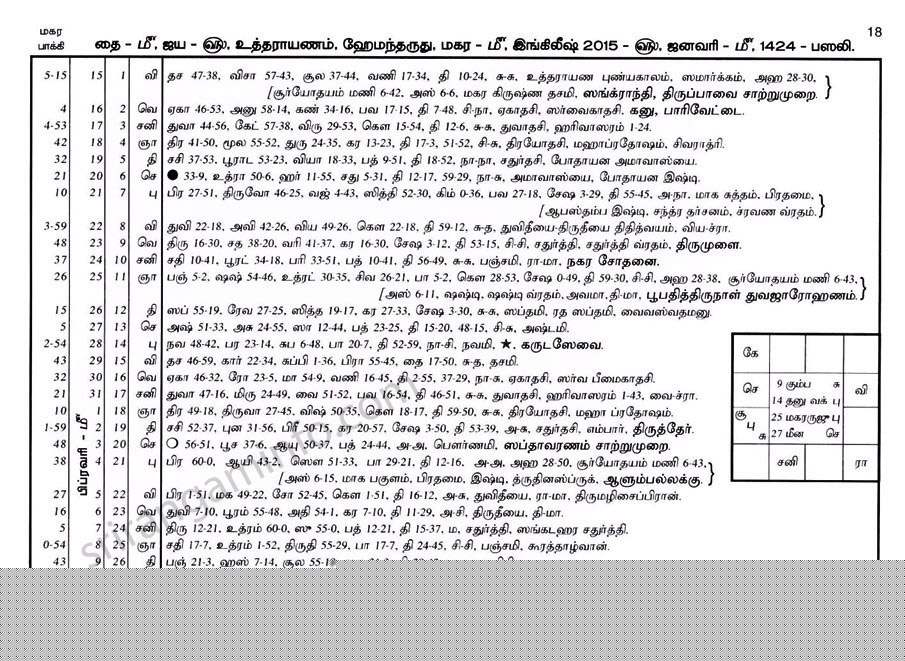 மகர
18
பாக்கி
தை - மீ, ஜய - ௵, உத்தராயணம், ஹேமந்தருது, மகர - மீ, இங்கிலீஷ் 2015 - ௵, ஜனவரி - மீ, 1424 - பஸலி.
5-15 15 1 வி தச 47-38, விசா 57-43, சூல 37-44, வணி 17-34, தி 10-24, சு-சு, உத்தராயண புண்யகாலம், ஸமார்க்கம், அஹ 28-30,
[சூர்யோதயம் மணி 6-42, அஸ் 6-6, மகர கிருஷ்ண தசமி, ஸங்க்ராந்தி, திருப்பாவை சாற்றுமுறை.
4 16 2 வெ ஏகா 46-53, அனு 58-14, கண் 34-16, பவ 17-15, தி 7-48, சி-நா, ஏகாதசி, ஸர்வைகாதசி. கனு, பாரிவேட்டை.
4-53 17 3 சனி துவா 44-56, கேட் 57-38, விரு 29-53, கௌ 15-54, தி 12-6, சு-சு, துவாதசி, ஹரிவாஸரம் 1-24.
42 18 4 ஞா திர 41-50, மூல 55-52, துரு 24-35, கர 13-23, தி 17-3, 51-52, சி-சு, திரயோதசி, மஹாப்ரதோஷம், சிவராத்ரி.
32 19 5 தி சசி 37-53, பூராட 53-23, வியா 18-33, பத் 9-51, தி 18-52, நா-நா, சதுர்தசி, போதாயன அமாவாஸ்யை.
21 20 6 செ ● 33-9, உத்ரா 50-6, ஹர் 11-55, சது 5-31, தி 12-17, 59-29, நா-சு, அமாவாஸ்யை, போதாயன இஷ்டி.
10 21 7 பு பிர 27-51, திருவோ 46-25, வஜ் 4-43, ஸித்தி 52-30, கிம் 0-36, பவ 27-18, சேஷ 3-29, தி 55-45, அ-நா, மாக சுத்தம், பிரதமை,
[ஆபஸ்தம்ப இஷ்டி, சந்த்ர தர்சனம், ச்ரவண வ்ரதம்.
3-59 22 8 வி துவி 22-18, அவி 42-26, விய 49-26, கௌ 22-18, தி 59-12, சு-த, துவிதீயை-திருதீயை திதித்வயம், விய-ச்ரா.
48 23 9 வெ திரு 16-30, சத 38-20, வரி 41-37, கர 16-30, சேஷ 3-12, தி 53-15, சி-சி, சதுர்த்தி, சதுர்த்தி வ்ரதம், திருமுளை.
37 24 10 சனி சதி 10-41, பூரட் 34-18, பரி 33-51, பத் 10-41, தி 56-49, சு-சு, பஞ்சமி, ரா-மா, நகர சோதனை.
26 25 11 ஞா பஞ் 5-2, ஷஷ் 54-46, உத்ரட் 30-35, சிவ 26-21, பா 5-2, கௌ 28-53, சேஷ 0-49, தி 59-30, சி-சி, அஹ 28-38, சூர்யோதயம் மணி 6-43,
[அஸ் 6-11, ஷஷ்டி, ஷஷ்டி வ்ரதம், அவமா, தி-மா, பூபதித்திருநாள் துவஜாரோஹணம்.
15 26 12 தி ஸப் 55-19, ரேவ 27-25, ஸித்த 19-17, கர 27-33, சேஷ 3-30, சு-சு, ஸப்தமி, ரத ஸப்தமி, வைவஸ்வதமனு.
5 27 13 செ அஷ் 51-33, அசு 24-55, ஸா 12-44, பத் 23-25, தி 15-20, 48-15, சி-சு, அஷ்டமி.
2-54 28 14 பு நவ 48-42, பர 23-14, சுப 6-48, பா 20-7, தி 52-59, நா-சி, நவமி, ★, கருடஸேவை.
43 29 15 வி தச 46-59, கார் 22-34, சுப்பி 1-36, பிரா 55-45, தை 17-50, சு-த, தசமி.
32 30 16 வெ ஏகா 46-32, ரோ 23-5, மா 54-9, வணி 16-45, தி 2-55, 37-29, நா-சு, ஏகாதசி, ஸர்வ பீமைகாதசி.
21 31 17 சனி துவா 47-16, மிரு 24-49, வை 51-52, பவ 16-54, தி 46-51, சு-சு, துவாதசி, ஹரிவாஸரம் 1-43, வை-ச்ரா.
10 1 18 ஞா திர 49-18, திருவா 27-45, விஷ் 50-35, கௌ 18-17, தி 59-50, சு-சு, திரயோதசி, மஹா ப்ரதோஷம்.
1-59 2 19 தி சசி 52-37, புன 31-56, பிரீ 50-15, கர 20-57, சேஷ 3-50, தி 53-39, அ-சு, சதுர்தசி, எம்பார், திருத்தேர்.
48 3 20 செ ○ 56-51, பூச 37-6, ஆயு 50-37, பத் 24-44, அ-அ, பௌர்ணமி, ஸப்தாவரணம் சாற்றுமுறை.
38 4 21 பு பிர 60-0, ஆயி 43-2, ஸௌ 51-33, பா 29-21, தி 12-16, அ-அ, அஹ 28-50, சூர்யோதயம் மணி 6-43,
[அஸ் 6-15, மாக பகுளம், பிரதமை, இஷ்டி, த்ருதினஸ்ப்ருக், ஆளும்பல்லக்கு.
27 5 22 வி பிர 1-51, மக 49-22, சோ 52-45, கௌ 1-51, தி 16-12, அ-சு, துவிதீயை, ரா-மா, திருமழிசைப்பிரான்.
16 6 23 வெ துவி 7-10, பூரம் 55-48, அதி 54-1, கர 7-10, தி 11-29, அ-சி, திருதீயை, தி-மா.
5 7 24 சனி திரு 12-21, உத்ரம் 60-0, ஸு 55-0, பத் 12-21, தி 15-37, ம, சதுர்த்தி, ஸங்கடஹர சதுர்த்தி.
0-54 8 25 ஞா சதி 17-7, உத்ரம் 1-52, திருதி 55-29, பா 17-7, தி 24-45, சி-சி, பஞ்சமி, கூரத்தாழ்வான்.
43 9 26 தி பஞ் 21-3, ஹஸ் 7-14, சூல 55-1
பிப்ரவரி - மீ
கே
செ
சூ
பு
சு
9 கும்ப சு
14 தனு வக் பு
25 மகருஜு பு
27 மீன செ
வி
சனி
ரா
srirangaminfo.com